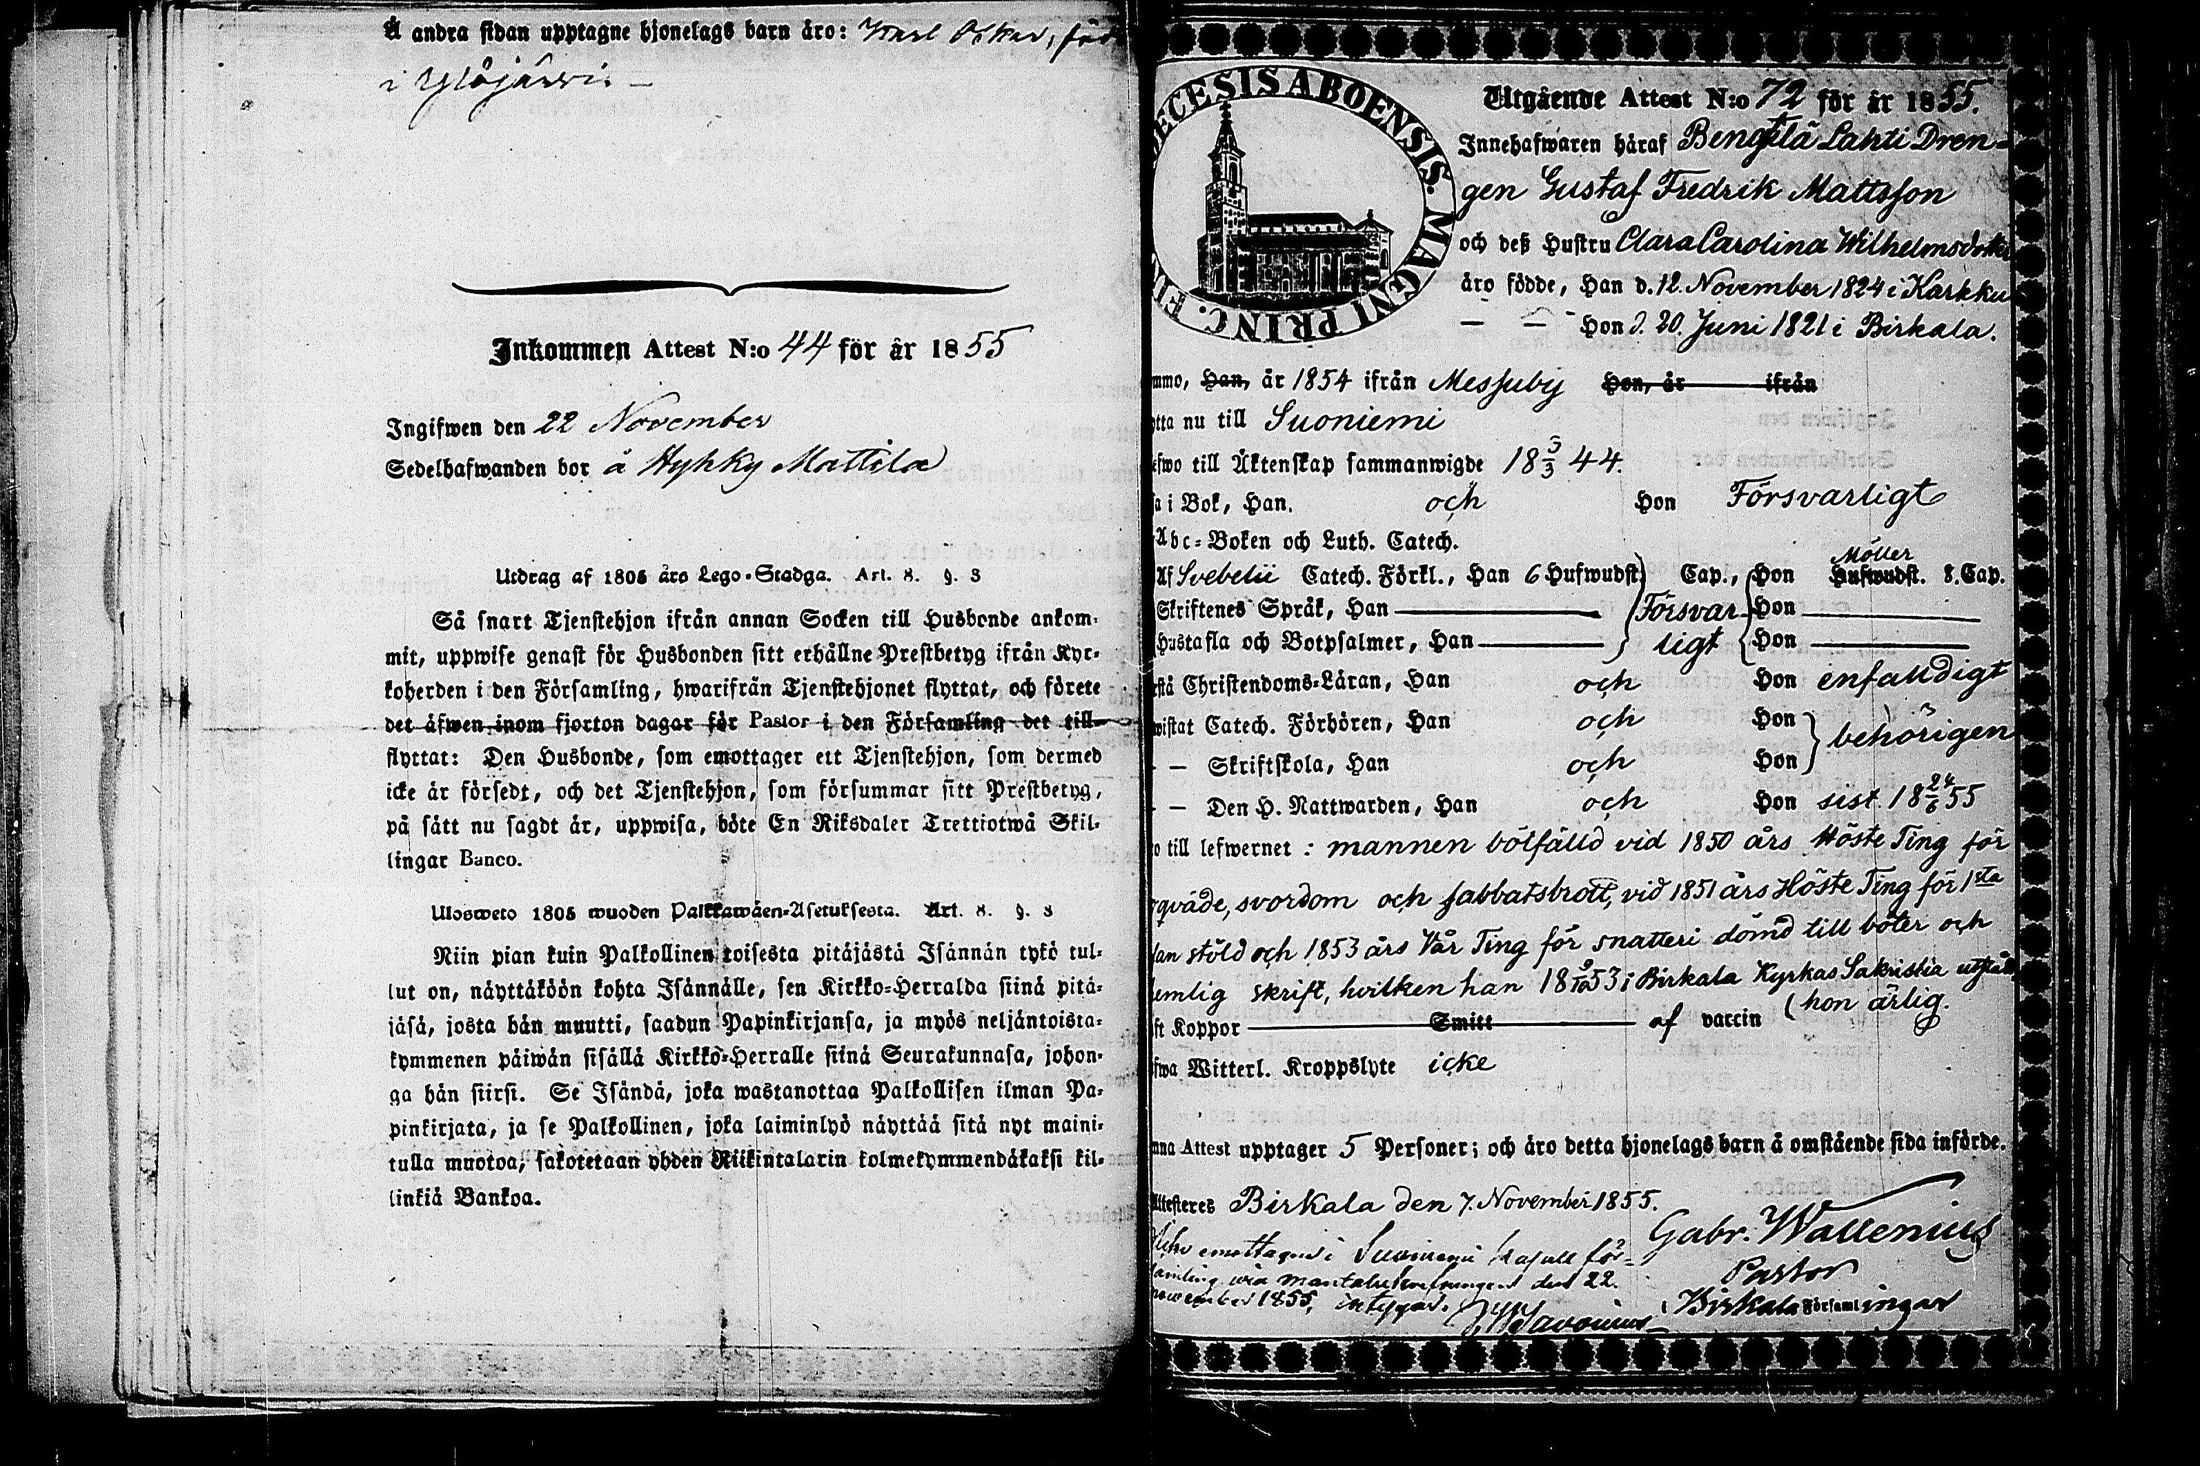 Å andra sidan upptagne hjonelags barn äro: Karl Oskar, föd
i Ylöjärvi. —
Inkommen Attest N:o 44 för år 1855
Ingifwen den 22 November
Sedelhafwanden bor å Hyhky Mattila
Utdrag af 1805 års Lego-Stadga. Art. 8. §. 3
Så snart Tjenstehjon ifrån annan Socken till Husbonde ankom-
mit, uppwise genast för Husbonden sitt erhållne Prestbetyg ifrån Kyr-
koherden i den Församling, hwarifrån Tjenstehjonet flyttat, och förete
det äfwen inom fjorton dagar för Pastor i den Församling det till-
flyttat: Den Husbonde, som emottager ett Tjenstehjon, som dermed
icke är försedt, och det Tjenstehjon, som försummar sitt Prestbetyg,
på sätt nu sagdt är, uppwisa, böte En Riksdaler Trettiotwå Skil-
lingar Banco.
Ulosweto 1805 wuoden Palkkawäen-Asetuksesta. Art. 8. §. 3
Niin pian kuin Palkollinen toisesta pitäjästä Isännän tykö tul-
lut on, näyttäköön kohta Isännälle, sen Kirkko-Herralda siinä pitä-
jäsä, josta hän muutti, saadun Papinkirjansa, ja myös neljäntoista-
kymmenen päiwän sisällä Kirkko-Herralle siinä Seurakunnasa, johon-
ga hän siirsi. Se Isändä, joka wastanottaa Palkollisen ilman Pa-
pinkirjata, ja se Palkollinen, joka laiminlyö näyttää sitä nyt maini-
tulla muotoa, sakotetaan yhden Riikintalarin kolmekymmendäkaksi kil-
linkiä Bankoa.
DIECESIS ABOENSIS. MAGNI PRINC. FIN
Utgående Attest N:o 72 för år 1855.
Innehafwaren häraf Bengtlä Lahti Dren-
gen Gustaf Fredrik Mattsson
och deß Hustru Clara Carolina Wilhelmsdotter
äro födde, Han d. 12. November 1824 i Karkku
— — Hon d. 20. Juni 1821 i Birkala.
mmo, Han, år 1854 ifrån Messuby Hon, år ifrån
tta nu till Suoniemi
efwo till Äktenskap sammanwigde 18 5/3 44.
sa i Bok, Han. och Hon Försvarligt
Abc-Boken och Luth. Catech.
Af Svebelii Catech. Förkl., Han 6 Hufwudst. Cap., Hon Möller Hufwudst. 8. Cap.
Skriftenes Språk, Han Försvar Hon
Hustafla och Botpsalmer, Han ligt Hon
rstå Christendoms-Läran, Han och Hon enfaldigt
wistat Catech. Förhören, Han och Hon
— — Skriftskola, Han och Hon behörigen
— — Den H. Nattwarden, Han och Hon sist 18 24/6 55
o till lefwernet: mannen bötfälld vid 1850 års Höste Ting för
qväde, svordom och sabbatsbrott, vid 1851 års Höste Ting för 1sta
an stöld och 1853 års Vår Ting för snatteri dömd till böter och
emlig skrift, hvilken han 18 9/10 53 i Birkala Kyrkas Sakristia utstått
ft Koppor Smitt af vaccin (hon ärlig.
fwa Witterl. Kroppslyte icke
nna Attest upptager 5 Personer; och äro detta hjonelags barn å omstående sida införde.
Attesteres Birkala den 7. November 1855.
Gabr. Wallenius
Pastor
i Birkala Församlingar
emottagne i Suoniemi kapell för-
samling vid mantalsskrifningen den 22.
november 1855, intygar.